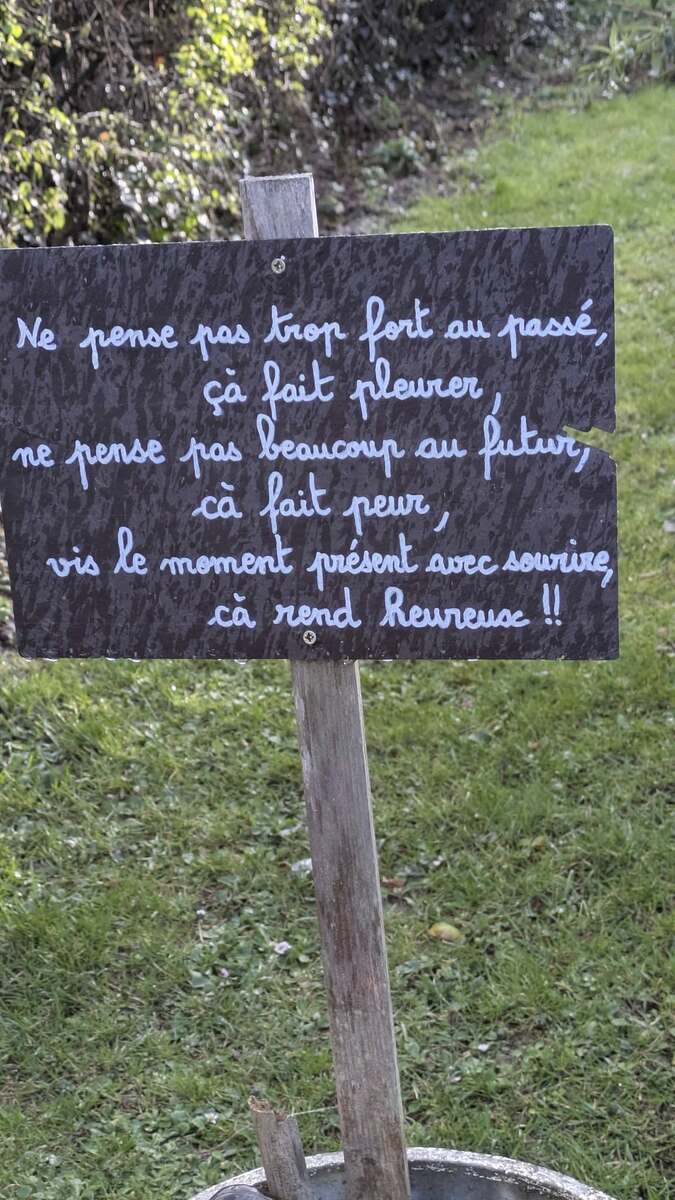 Ne pense pas trop fort au passé,
çà fait pleurer,
ne pense pas beaucoup au futur,
cà fait peur,
vis le moment présent avec sourire,
cà rend heureux !!